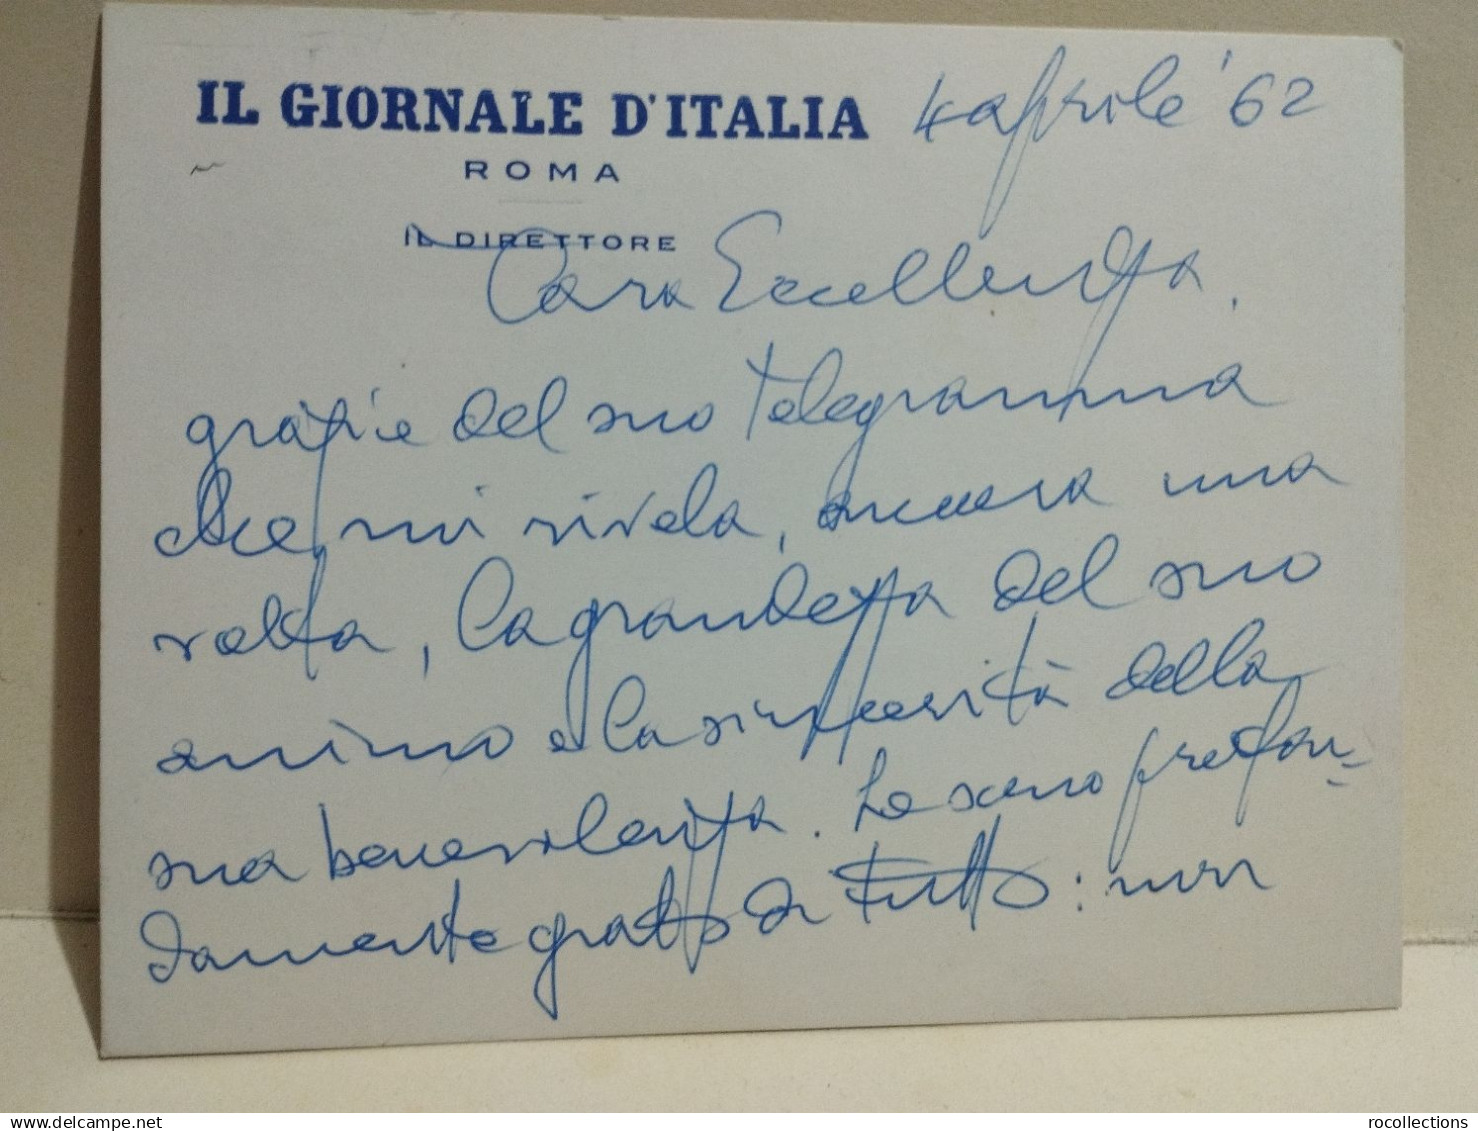 IL GIORNALE D'ITALIA
4 aprile '62
ROMA
IL DIRETTORE
Cara Eccellenza,
grazie del suo telegramma
che mi rivela, ancora una
volta, la grandezza del suo
animo e la sincerità della
sua benevolenza. Le sono profon=
damente grato di tutto: non
rocollections